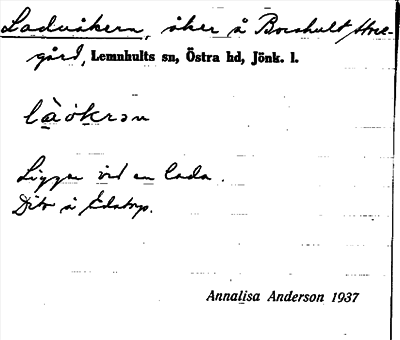 Laduåkern, åker å Boeshult Stor-
gård, Lemnhults sn, Östra hd, Jönk. l.
làòkrən
Ligger vid en lada.
Dito å Edstorp.
Annalisa Anderson 1937